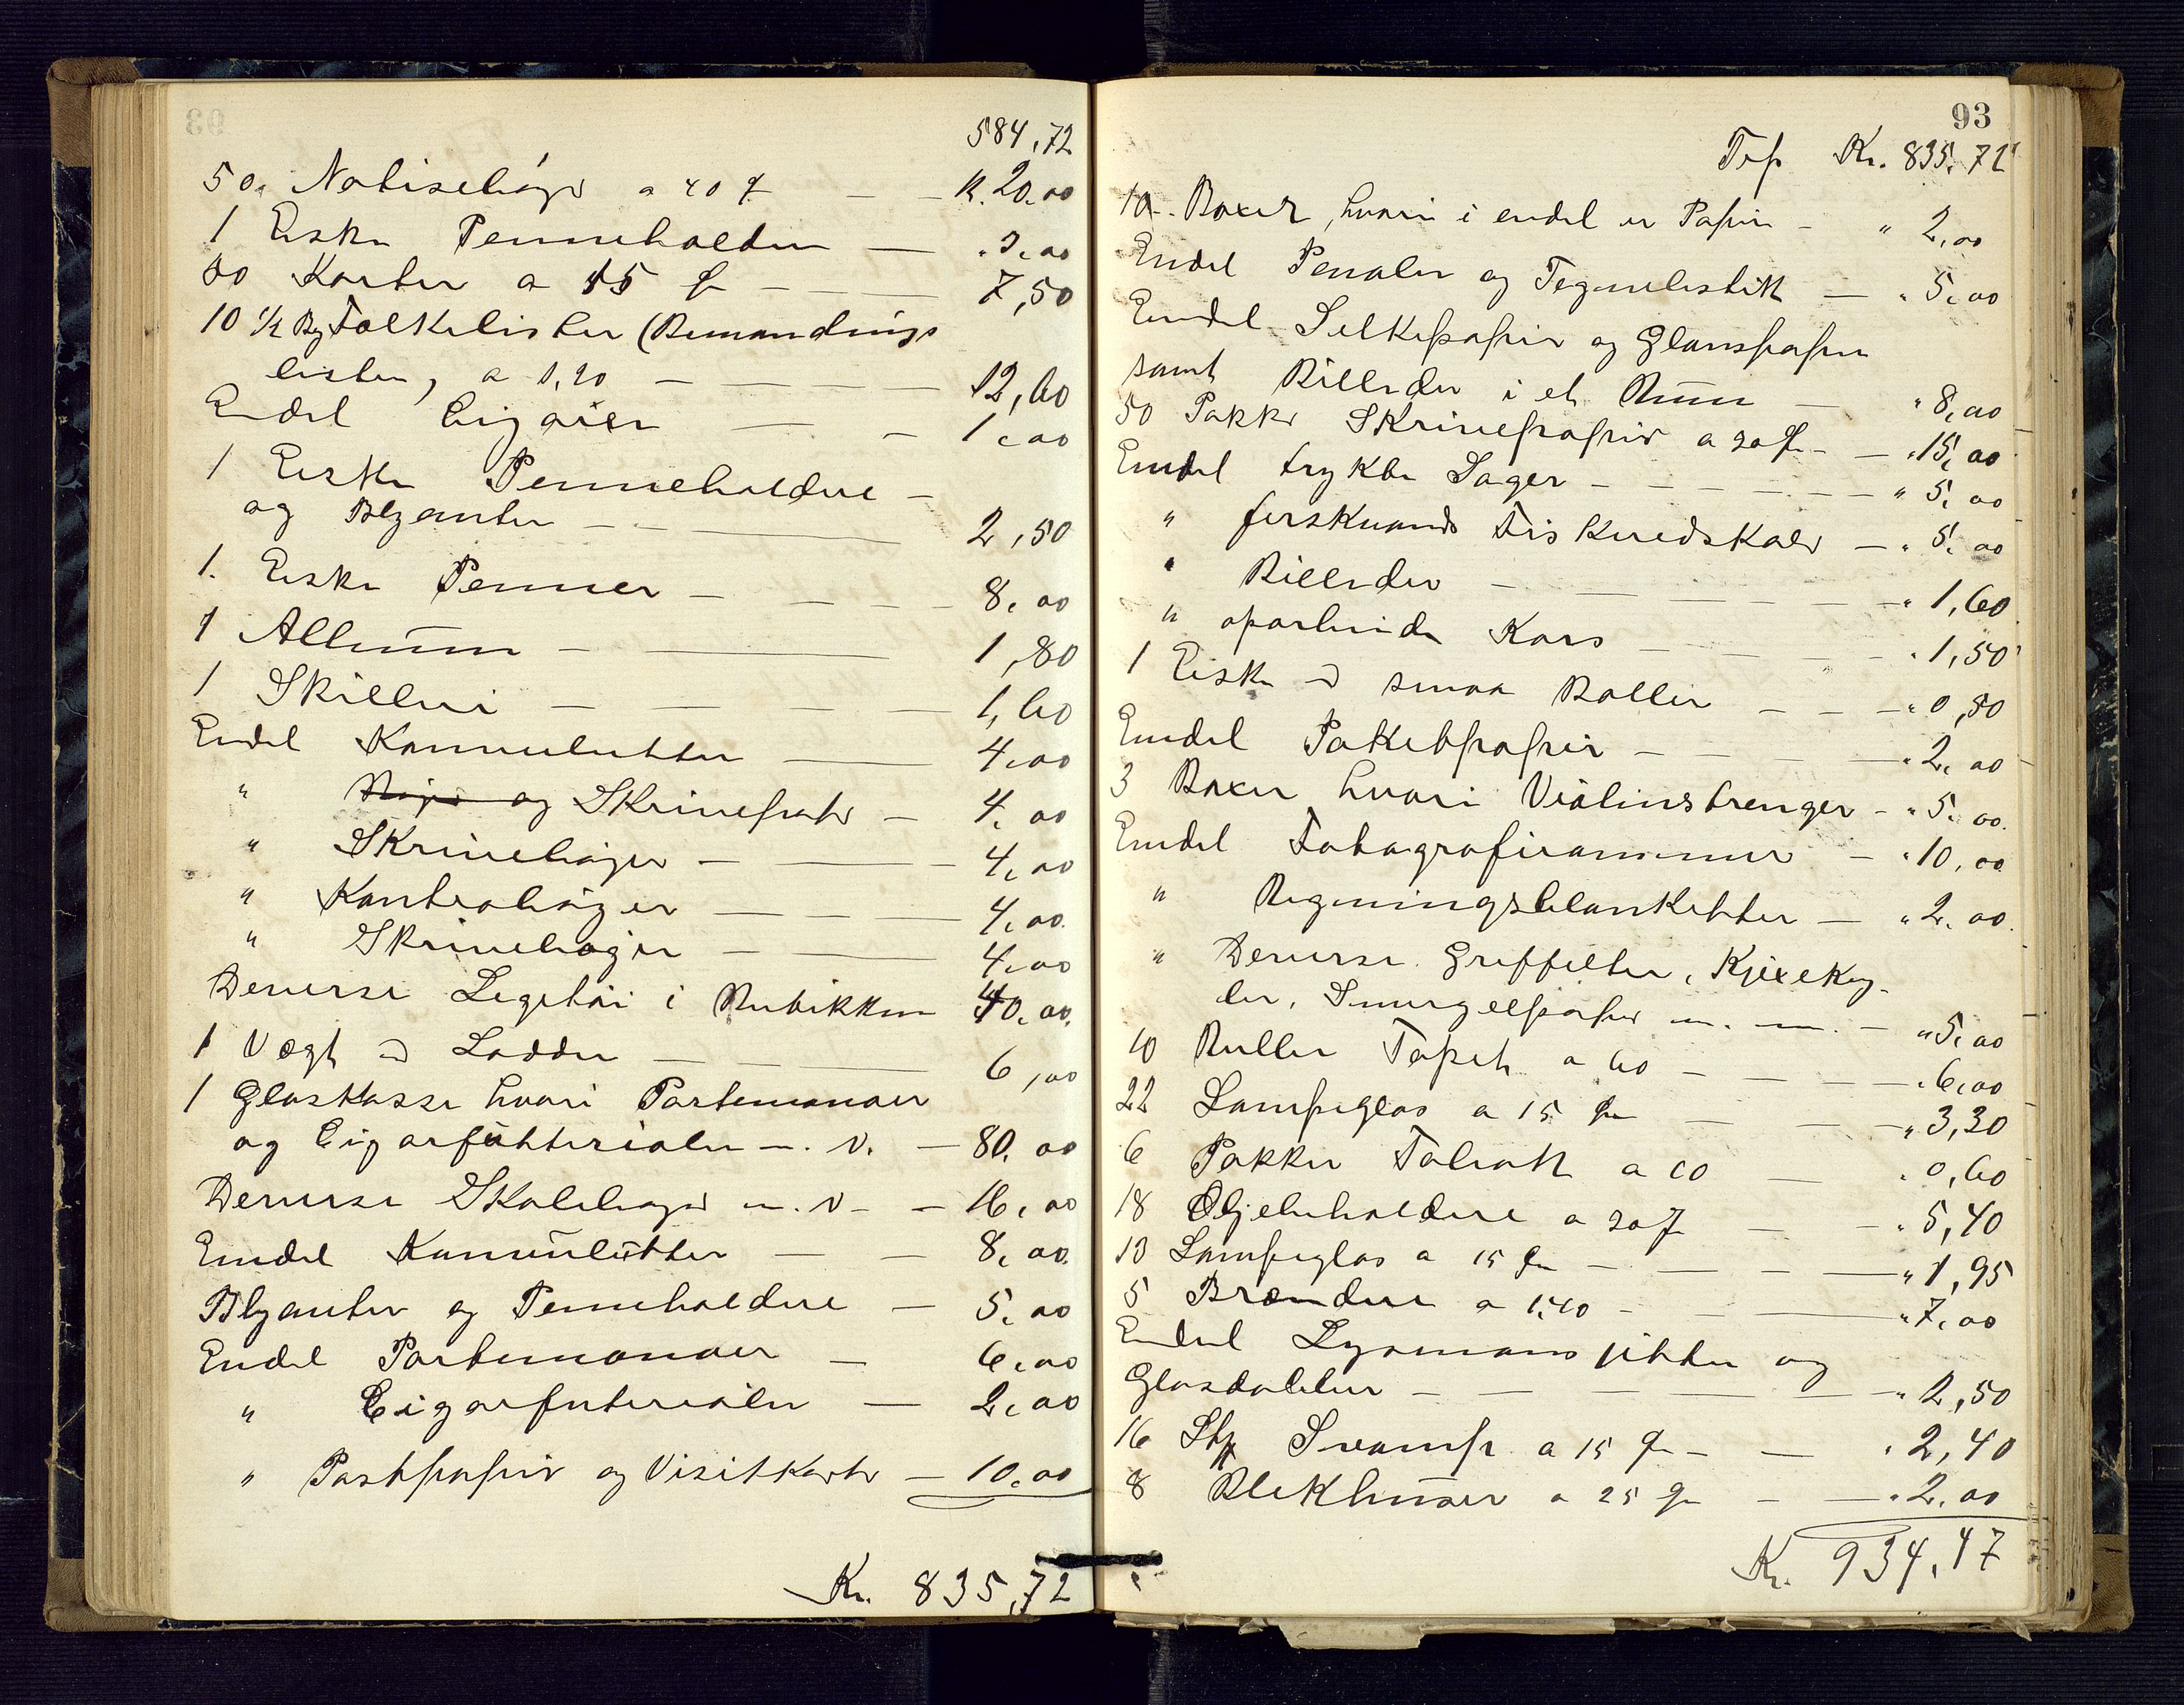 584,72
50. Notisebøger a 40 ø — — K. 20.00
1 Eske Penneholdere — " 3,00
50 Korter a 15 ø — — 7,50
10 1/2 Bg Folkelister (Bemandings
lister) a 1,20 — — — 12,60
Endel Cigarer — — 1,00
1 Eske Penneholdere —
og Blyanter — — 2,50
1. Eske Penner — — — — 8,00
1 Album — — 1,80
1 Skilleri — — — — 1,60
Endel Konvolutter — 4,00
" og Skrivepr — 4,00
" Skrivebøger — — 4,00
" Kontrabøger — — — 4,00
" Skrivebøger — — 4,00
Deverse Legetøi i Butikken 40,00
1 Vægt m Lodder — — 6,00
1 Glaskasse hvori Portemonaer
og Cigarfutterialer m. v. — 80,00
Deverse Skolebøger m. v — — 16,00
Endel Konvolutter — — 8,00
Blyanter og Penneholdere — 5,00
Endel Portemonaer — 6,00
" Cigarfuterialer — 2,00
" Postpapir og Visitkort — 10,00
Kr. 835,72
93
Trp Kr. 835,72
10. Boxer, hvori i endel er Papir — " 2,00
Endel Penaler og Tegnebestik — " 5,00
Endel Silkepapir og Glanspapir
samt Billeder i et Rum — " 8,00
50 Pakker Skrivepapir a 30 ø — — " 15,00
Endel trykte Sager — — — — " 5,00
" ferskvands Fiskeredskaber — " 5,00
" Billeder — — — — " 1,60
" oparbeide Kors — — — " 1,50
1 Eske m smaa Boller — — — " 0,50
Endel Paketpapir — — — " 2,00
3 Boxer hvori Violinstrenger — " 5,00
Endel Fotografirammer — " 10,00
" Regningsblanketter — " 2,00
" Deverse Griffelter, Kjexekog-
ler, Smergelpapir m. m. — " 5,00
10 Ruller Tapet a 60 — — — " 6,00
22 Lampeglas a 15 ø — — " 3,30
6 Pakker Tobak a 10 — " 0,60
18 Oljebeholdere a 30 ø — — " 5,40
13 Lampeglas a 15 ø — — — " 1,95
5 Brændere a 1,40 — — " 7,00
Endel Lysmansjetter og
Glasdobber — — — — " 2,50
16 Stk Svamp a 15 ø — — " 2,40
8 Blekhuser a 25 ø — — " 2,00
Kr. 934,47